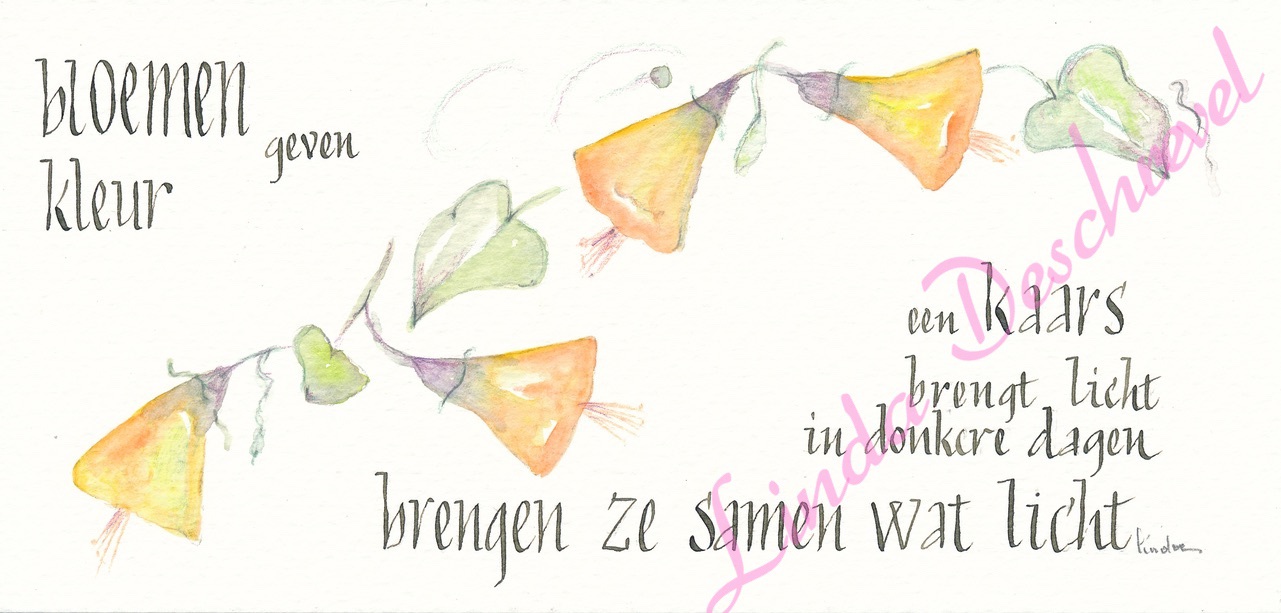 bloemen
geven
kleur
een kaars
brengt licht
in donkere dagen
brengen ze samen wat licht
Linda
Linda Deschuevel